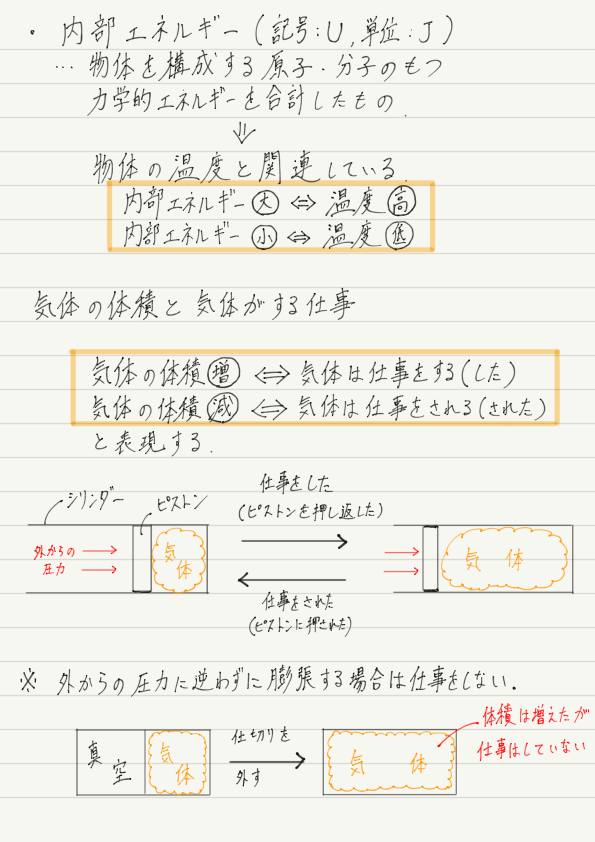 ・内部エネルギー(記号:U,単位:J)
…物体を構成する原子・分子のもつ
力学的エネルギーを合計したもの.
⇓
物体の温度と関連している.
内部エネルギー大⇔温度高
内部エネルギー小⇔温度低
気体の体積と気体がする仕事
気体の体積増⇔気体は仕事をする(した)
気体の体積減⇔気体は仕事をされる(された)
と表現する.
シリンダー
ピストン
仕事をした
(ピストンを押し返した)
外からの
圧力
気
体
気体
仕事をされた
(ピストンに押された)
※ 外からの圧力に逆わずに膨張する場合は仕事をしない.
真
空
気
体
仕切りを
外す
気体
体積は増えたが
仕事はしていない